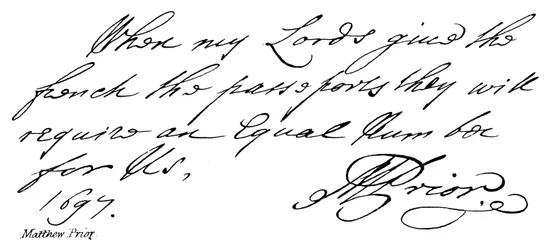 When my Lords give the
french the passeports they will
require an Equal Number
for Us,
1697.
MPrior.
Matthew Prior.